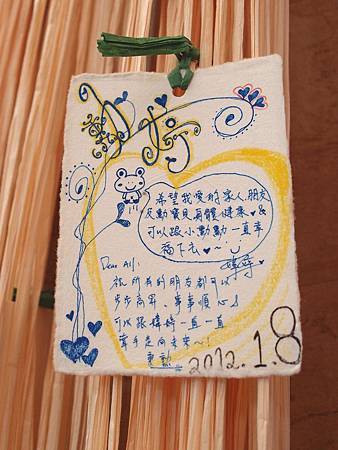 希望我愛的家人、朋友
及動寶貝身體健康♥&
可以跟小動動一直幸
福下去♥~
婷婷♥
Dear All:
祝所有的朋友都可以
步步高昇、事事順心。
可以跟婷婷一直一直
牽手走向未來~!
2012.1.8